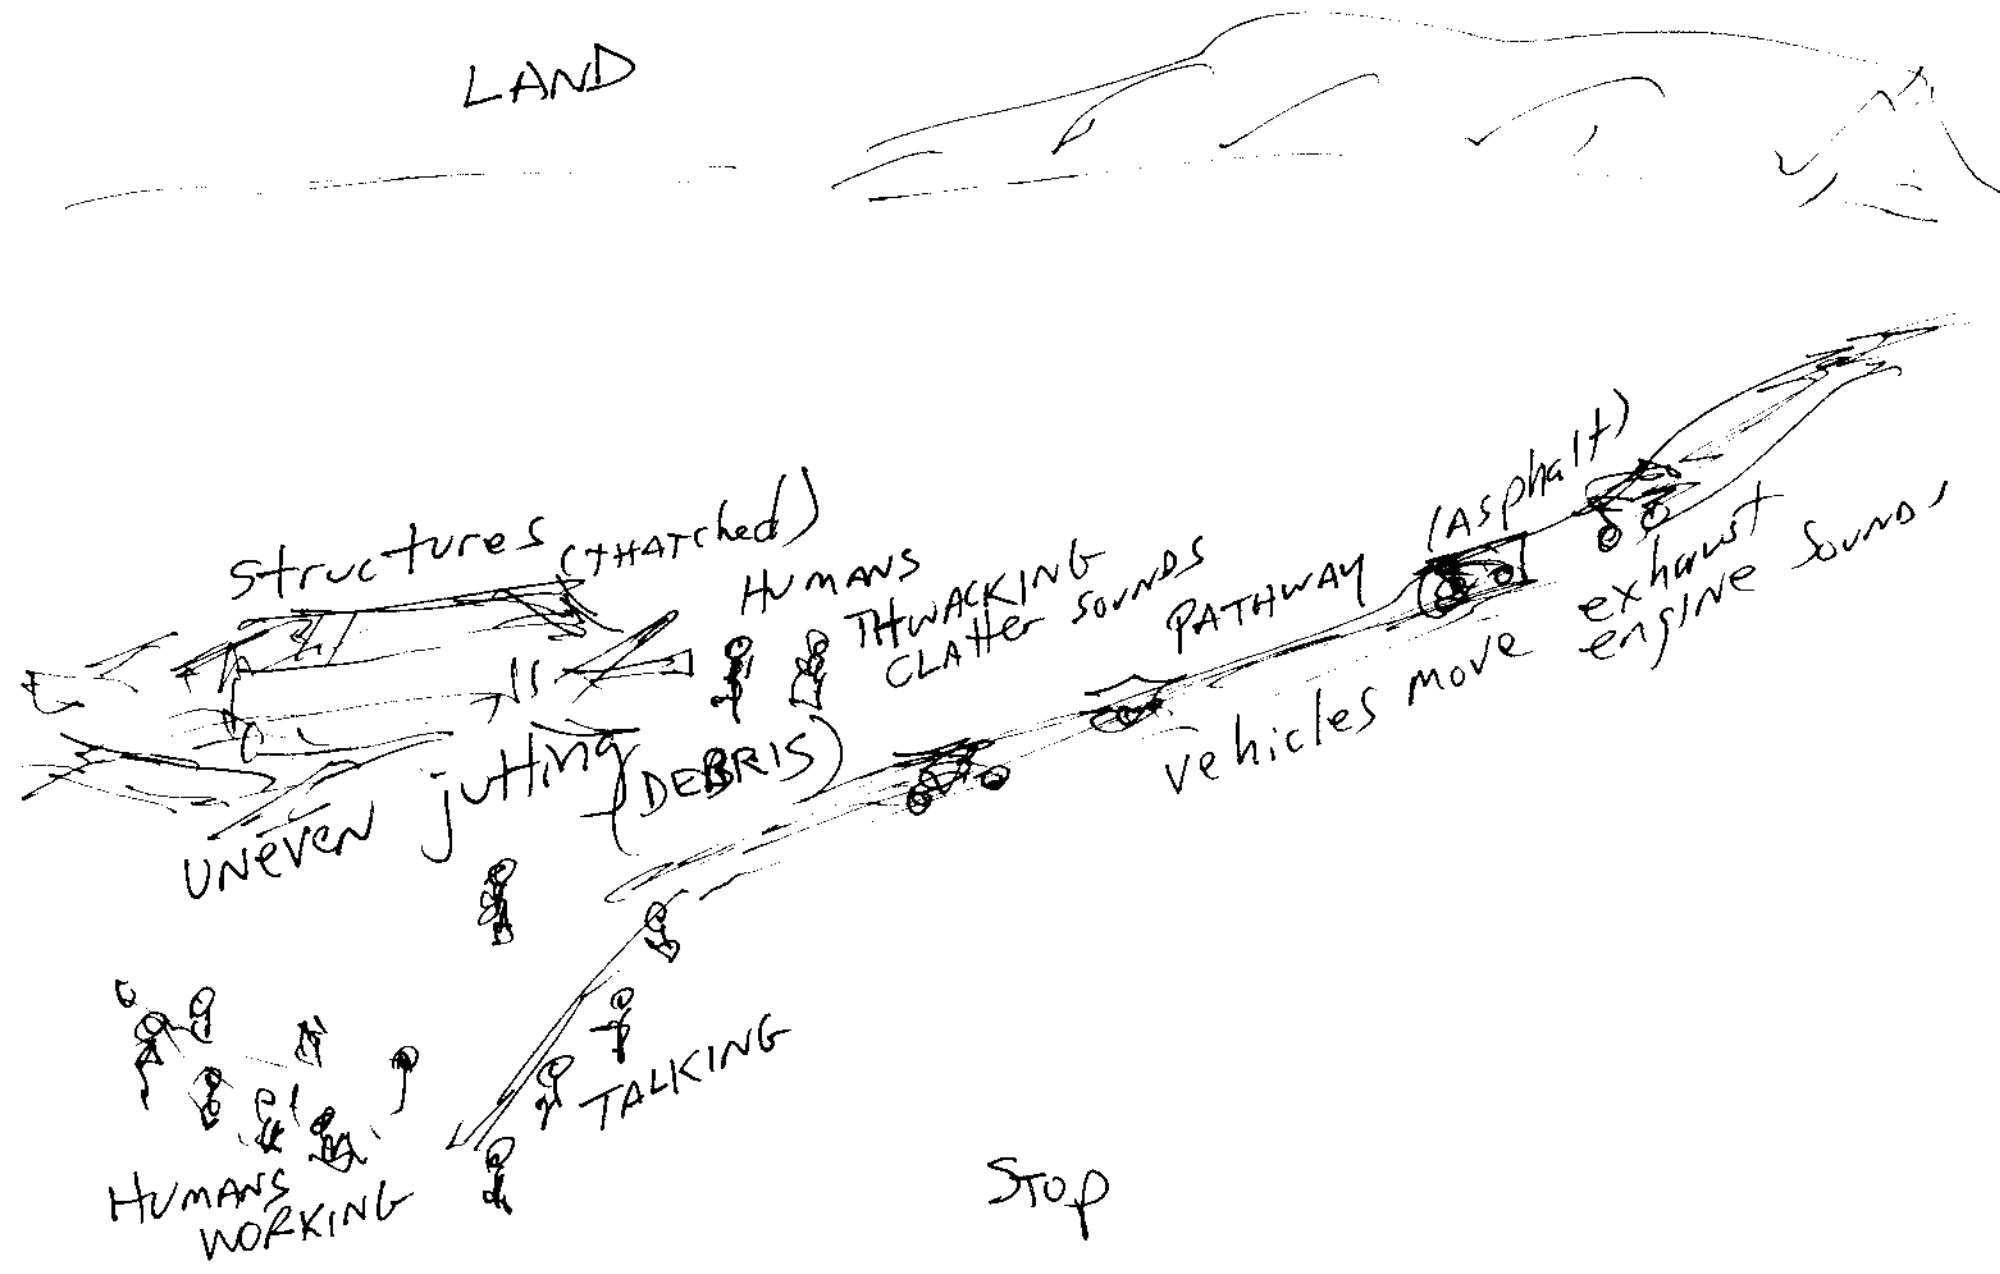 LAND
Structures (THATched)
HUMANS
THWACKING
CLAtter SOUNDS
PATHWAY (Asphalt)
vehicles move exhaust
engine SOUNDS
UNeveN jutting (DEBRIS)
TALKING
HUMANS
WORKING
STOP